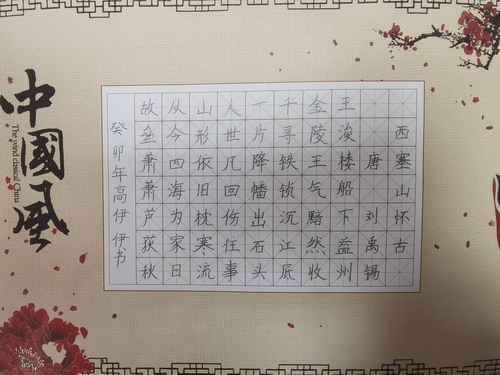 西塞山怀古
唐 刘禹锡
王浚楼船下益州
金陵王气黯然收
千寻铁锁沉江底
一片降幡出石头
人世几回伤往事
山形依旧枕寒流
从今四海为家日
故垒萧萧芦荻秋
癸卯年高伊伊书
中國風
The wind classical China